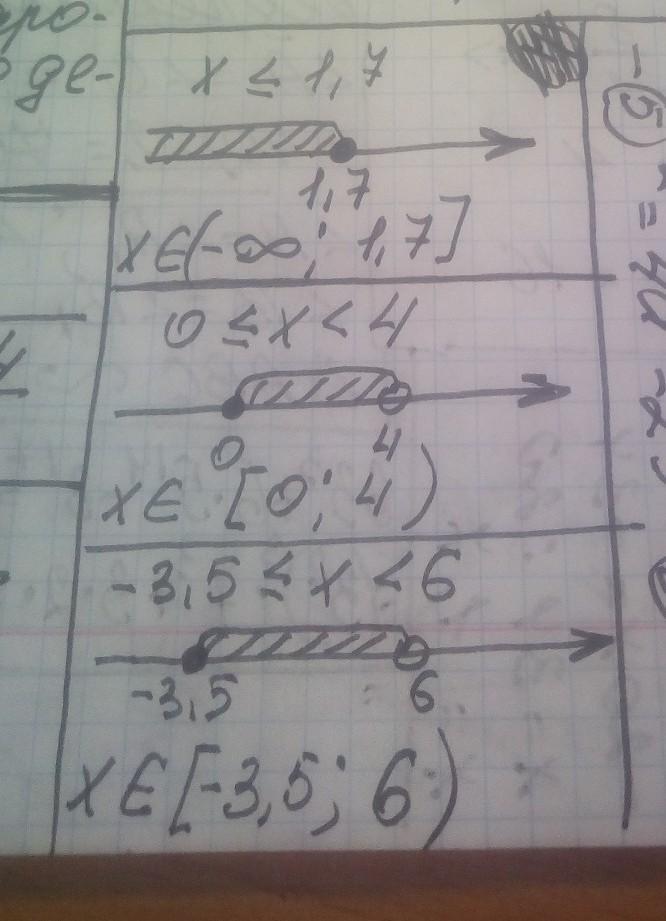 про-
де-
x ≤ 1,7
1,7
x∈(-∞; 1,7]
0 ≤ x < 4
0 4
x∈ [0; 4)
-3,5 ≤ x < 6
-3,5 6
x∈[-3,5; 6)